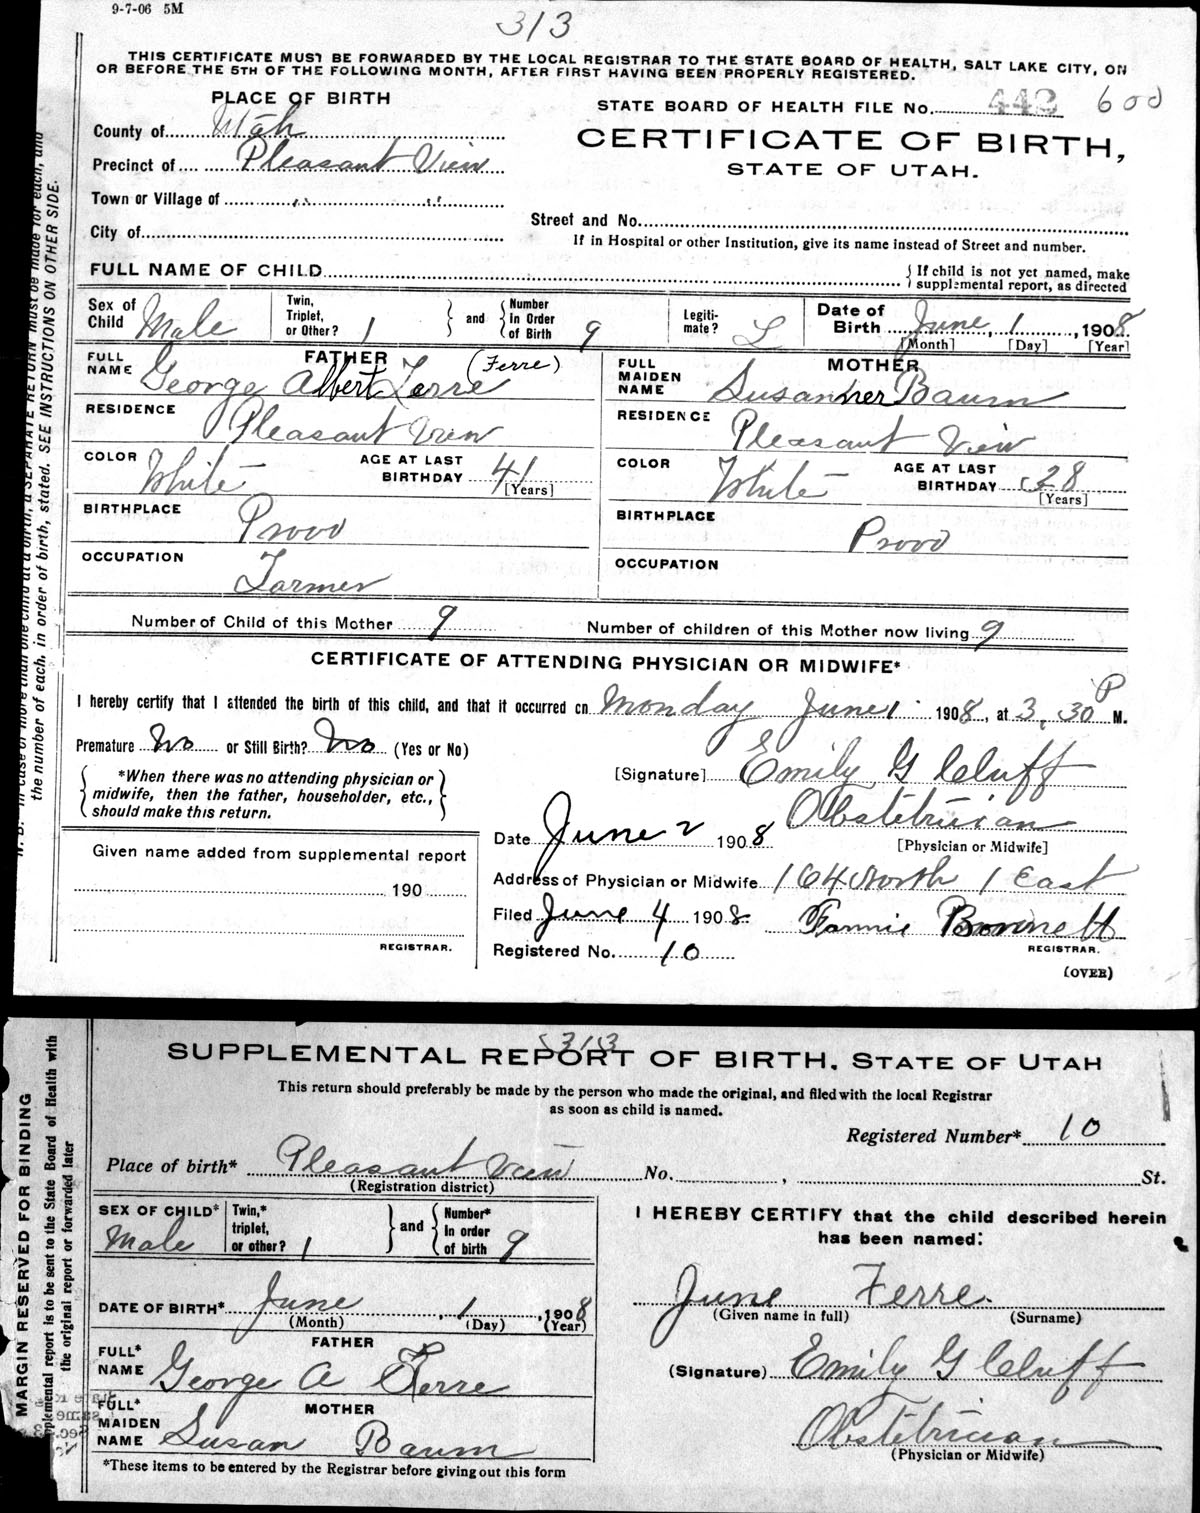 9-7-06 5M
313
THIS CERTIFICATE MUST BE FORWARDED BY THE LOCAL REGISTRAR TO THE STATE BOARD OF HEALTH, SALT LAKE CITY, ON
OR BEFORE THE 5TH OF THE FOLLOWING MONTH, AFTER FIRST HAVING BEEN PROPERLY REGISTERED.
PLACE OF BIRTH
STATE BOARD OF HEALTH FILE No. 442 600
County of Utah
CERTIFICATE OF BIRTH,
Precinct of Pleasant View
STATE OF UTAH.
Town or Village of " "
Street and No.
City of
If in Hospital or other Institution, give its name instead of Street and number.
FULL NAME OF CHILD
{ If child is not yet named, make
supplemental report, as directed
Sex of Child Male
Twin, Triplet, or Other? 1 } and { Number in Order of Birth 9
Legitimate? L
Date of Birth June 1, 1908
[Month] [Day] [Year]
FATHER
FULL NAME George Albert Ferre (Ferre)
MOTHER
FULL MAIDEN NAME Susanner Baum
RESIDENCE Pleasant View
RESIDENCE Pleasant View
COLOR White AGE AT LAST BIRTHDAY 41 [Years]
COLOR White AGE AT LAST BIRTHDAY 28 [Years]
BIRTHPLACE Provo
BIRTHPLACE Provo
OCCUPATION Farmer
OCCUPATION
Number of Child of this Mother 9
Number of children of this Mother now living 9
CERTIFICATE OF ATTENDING PHYSICIAN OR MIDWIFE*
I hereby certify that I attended the birth of this child, and that it occurred on Monday June 1 1908, at 3.30 P M.
Premature No or Still Birth? No (Yes or No)
{ *When there was no attending physician or
midwife, then the father, householder, etc.,
should make this return. }
[Signature] Emily G Cluff
Obstetrician
[Physician or Midwife]
Date June 2 1908
Given name added from supplemental report
190
REGISTRAR.
Address of Physician or Midwife 164 North 1 East
Filed June 4 1908 Fannie Bonnett
REGISTRAR.
Registered No. 10
(OVER)
In case of more than one child at a birth, a SEPARATE RETURN must be made for each, and
the number of each, in order of birth, stated. SEE INSTRUCTIONS ON OTHER SIDE.
313
SUPPLEMENTAL REPORT OF BIRTH, STATE OF UTAH
This return should preferably be made by the person who made the original, and filed with the local Registrar
as soon as child is named.
Registered Number* 10
Place of birth* Pleasant View No. , St.
(Registration district)
SEX OF CHILD* Male
Twin,* triplet, or other? 1 } and { Number* in order of birth 9
I HEREBY CERTIFY that the child described herein
has been named:
DATE OF BIRTH* June, 1, 1908
(Month) (Day) (Year)
June Ferre.
(Given name in full) (Surname)
FATHER
FULL* NAME George A Ferre
(Signature) Emily G Cluff
MOTHER
FULL* MAIDEN NAME Susan Baum
Obstetrician
(Physician or Midwife)
*These items to be entered by the Registrar before giving out this form
MARGIN RESERVED FOR BINDING
plemental report is to be sent to the State Board of Health with
the original report or forwarded later